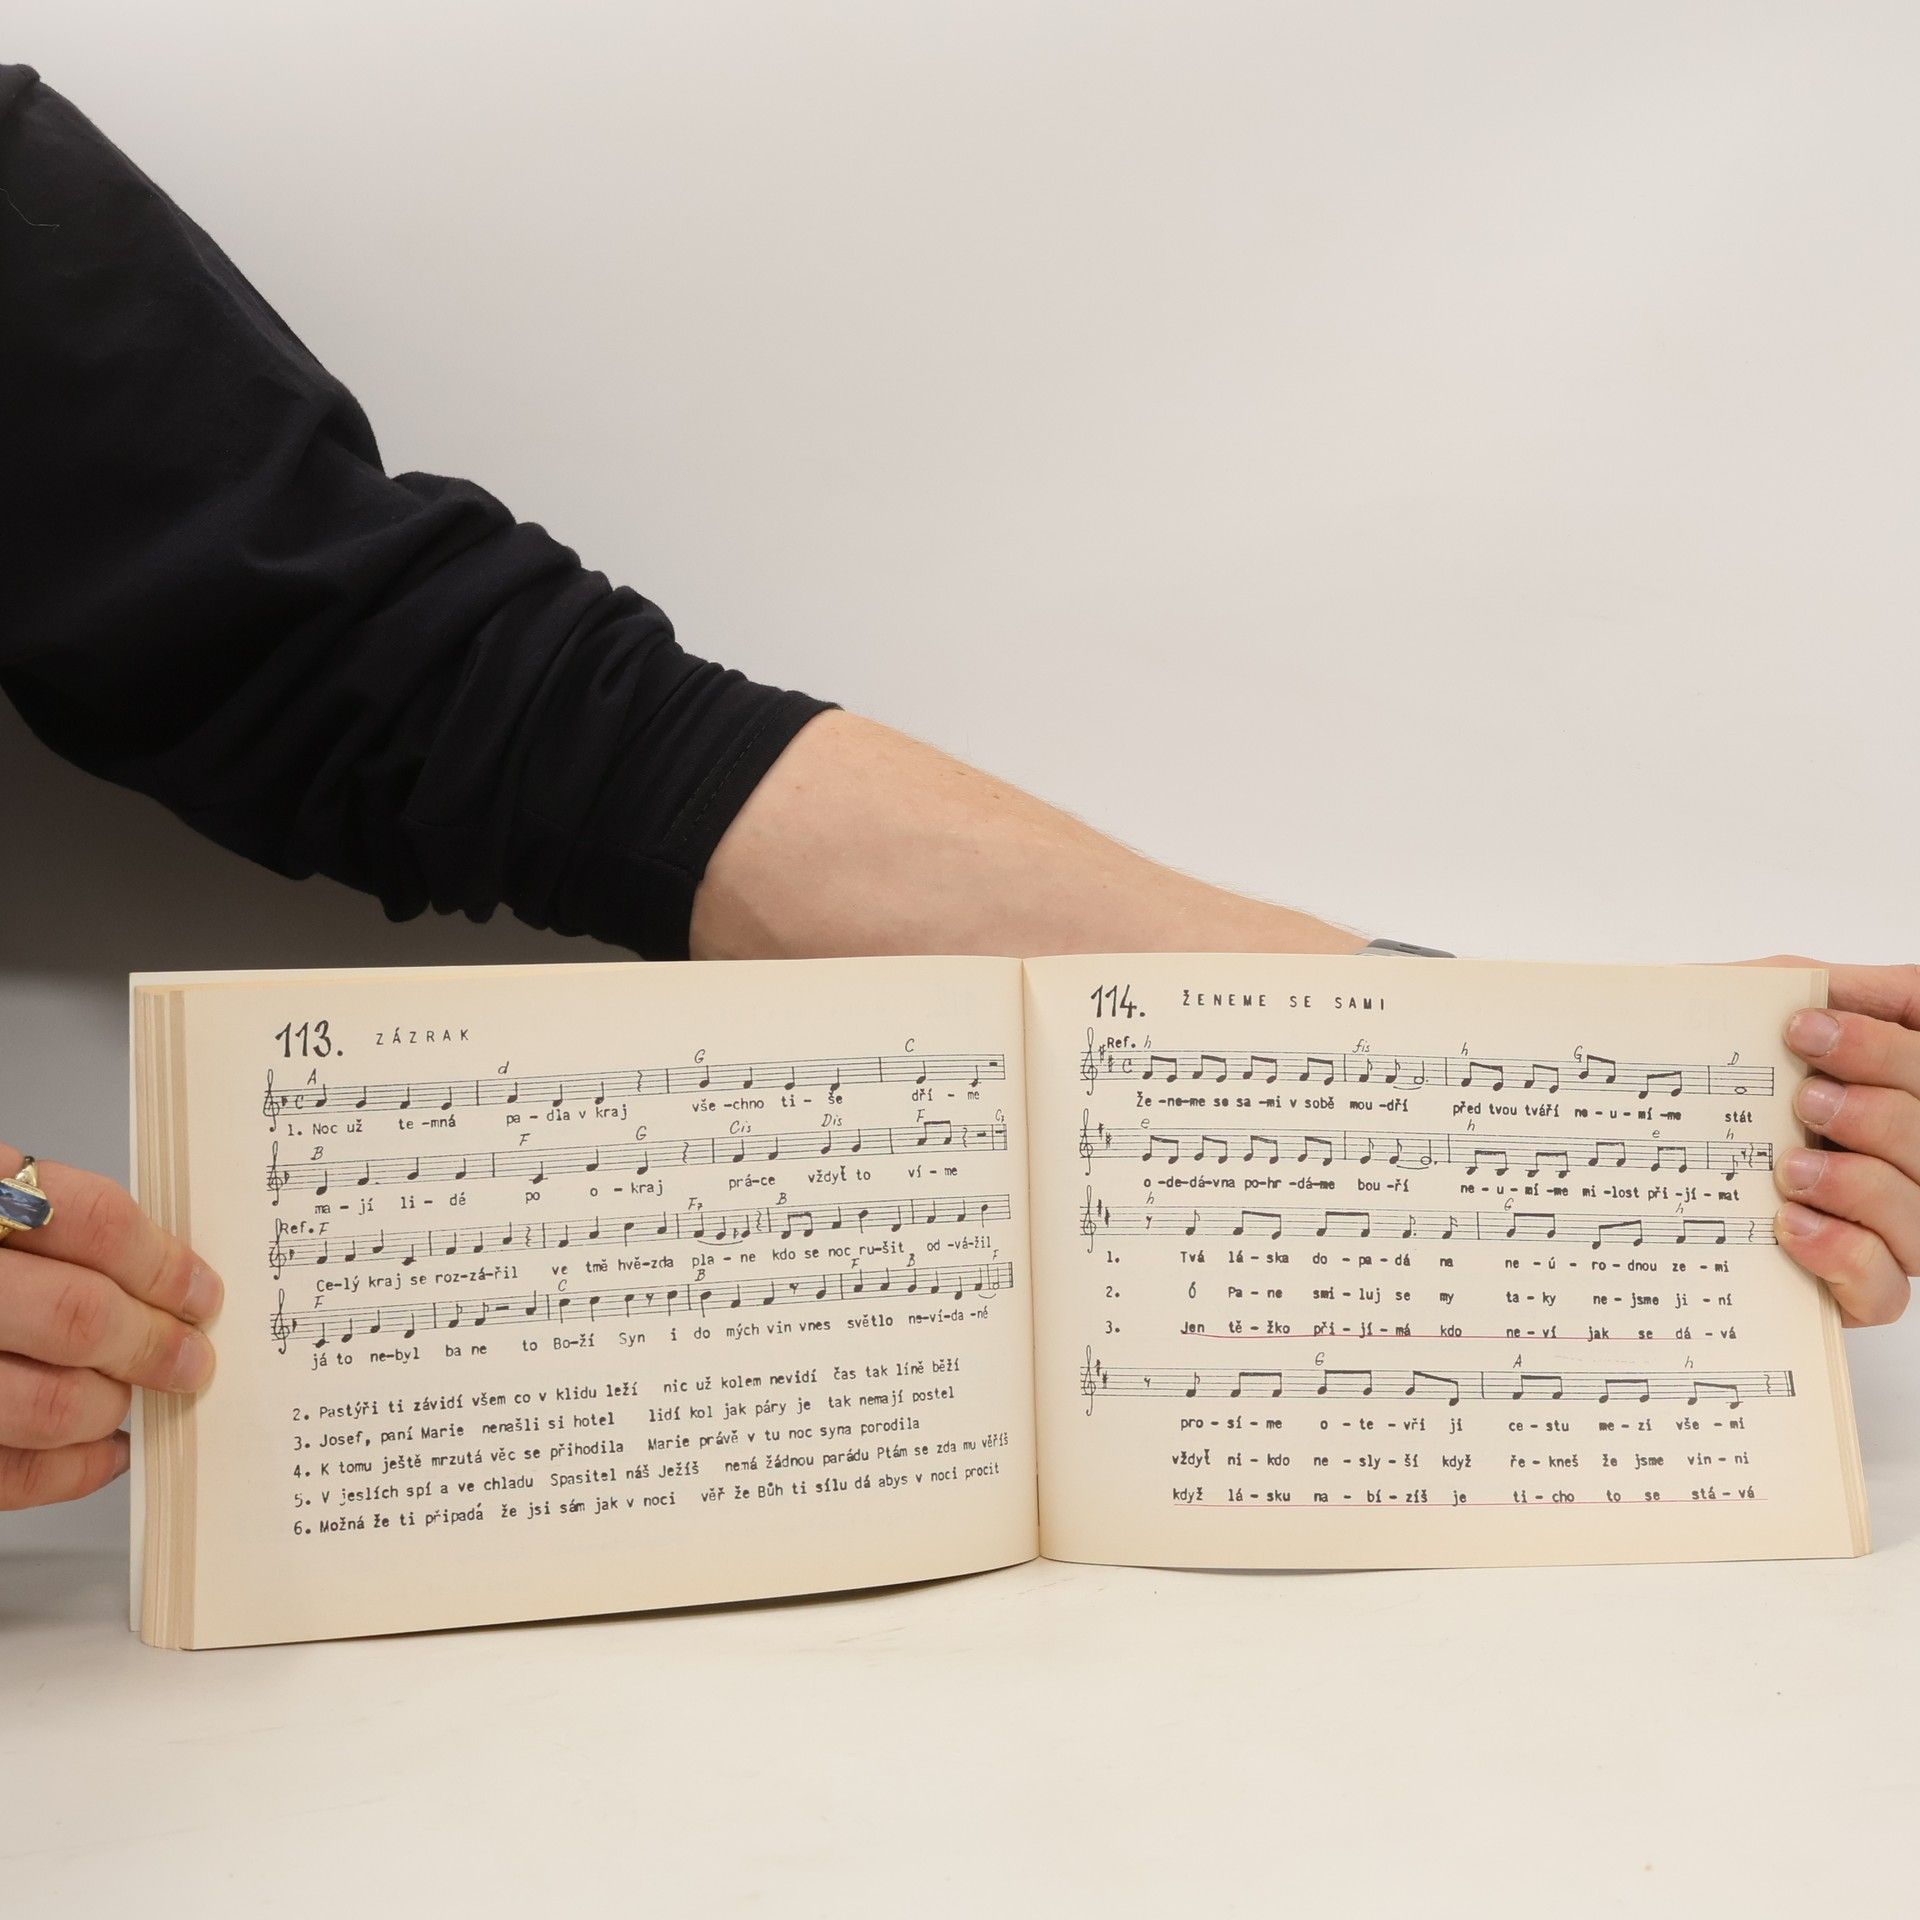 113. ZÁZRAK
A d G C
1. Noc už te-mná pa-dla v kraj vše-chno ti-še dří-me
B F G Cis Dis F C7
ma-jí li-dé po o-kraj prá-ce vždyť to ví-me
Ref. F F7 B
Ce-lý kraj se roz-zá-řil ve tmě hvě-zda pla-ne kdo se noc ru-šit od-vá-žil
F C B F B F
já to ne-byl ba ne to Bo-ží Syn i do mých vin vnes světlo ne-ví-da-né
2. Pastýři ti závidí všem co v klidu leží nic už kolem nevidí čas tak líně běží
3. Josef, paní Marie nenašli si hotel lidí kol jak páry je tak nemají postel
4. K tomu ještě mrzutá věc se přihodila Marie právě v tu noc syna porodila
5. V jeslích spí a ve chladu Spasitel náš Ježíš nemá žádnou parádu Ptám se zda mu věříš
6. Možná že ti připadá že jsi sám jak v noci věř že Bůh ti sílu dá abys v noci procit
114. ŽENEME SE SAMI
Ref. h fis h G D
Že-ne-me se sa-mi v sobě mou-dří před tvou tváří ne-u-mí-me stát
e h e h
o-de-dá-vna po-hr-dá-me bou-ří ne-u-mí-me mi-lost při-jí-mat
h G h
1. Tvá lá-ska do-pa-dá na ne-ú-ro-dnou ze-mi
2. Ó Pa-ne smi-luj se my ta-ky ne-jsme ji-ní
3. Jen tě-žko při-jí-má kdo ne-ví jak se dá-vá
G A h
pro-sí-me o-te-vři jí ce-stu me-zi vše-mi
vždyť ni-kdo ne-sly-ší když ře-kneš že jsme vin-ni
když lá-sku na-bí-zíš je ti-cho to se stá-vá